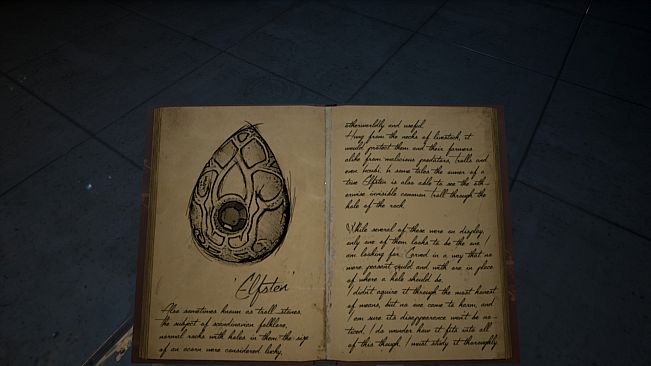 'Elfsten'
Also sometimes known as troll stones,
the subject of scandinavian folklore,
normal rocks with holes in them the size
of an acorn were considered lucky,
otherworldly and useful.
Hung from the necks of livestock, it
would protect them and their farmers
alike from malicious predators, trolls and
even
In some tales the owner of a
true Elfsten is also able to see the oth-
erwise invisible common troll through the
hole of the rock.
While several of these were on display,
only one of them looks to be the one I
am looking for. Carved in a way that no
mere peasant could and with ore in place
of where a hole should be.
I didn't aquire it through the most honest
of means, but no one came to harm, and
I am sure its disappearance won't be no-
ticed. I do wonder how it fits into all
of this though. I must study it thoroughly